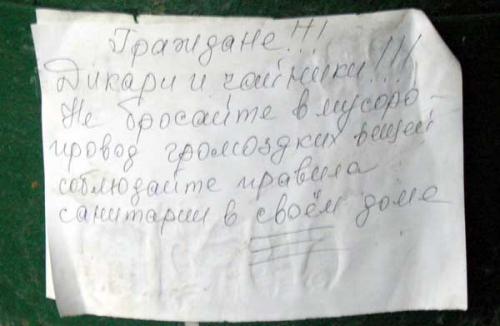 Граждане!!!
Дикари и чайники!!!
Не бросайте в мусоро-
провод громоздких вещей
соблюдайте правила
санитарии в своём доме